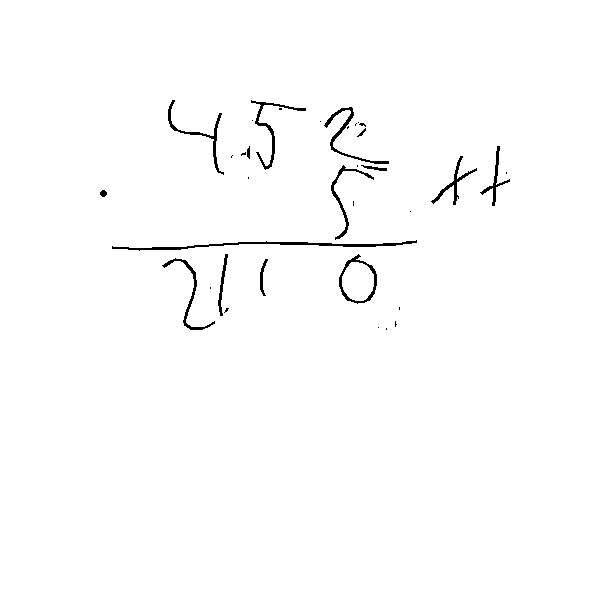 452
· 5 ++
2110